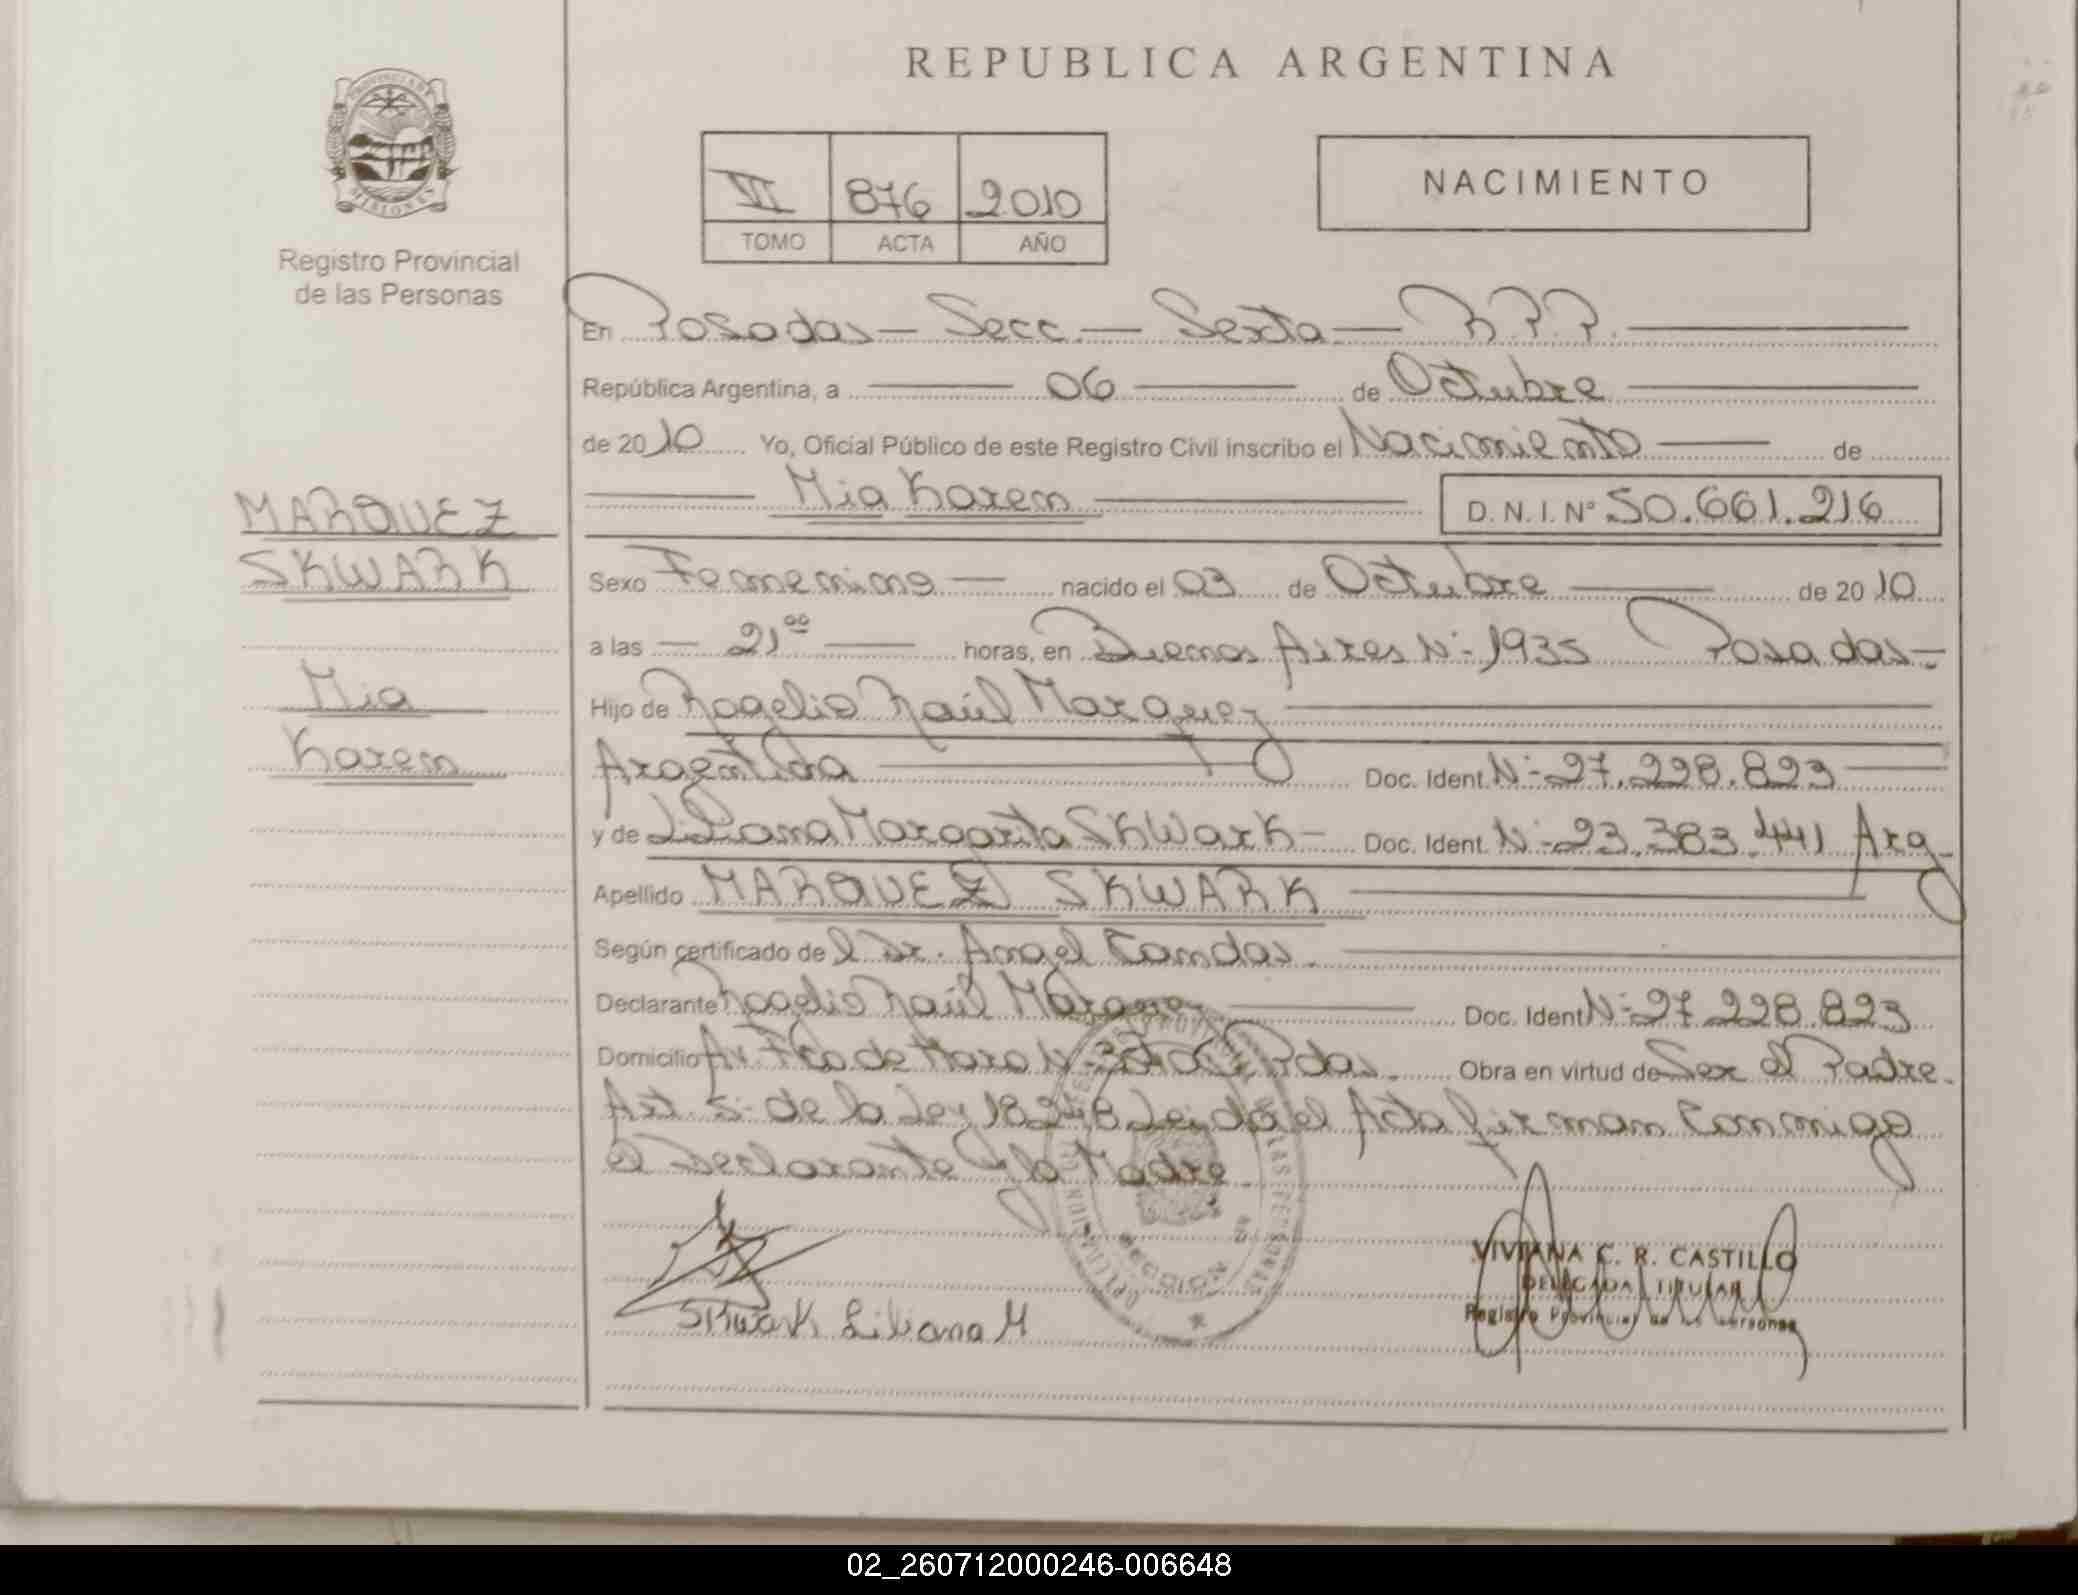 REPUBLICA ARGENTINA
PROVINCIA DE MISIONES
Registro Provincial
de las Personas
VI 876 2010
TOMO ACTA AÑO
NACIMIENTO
En Posadas - Secc. - Sexta - R.P.P.
República Argentina, a 06 de Octubre
de 2010 Yo, Oficial Público de este Registro Civil inscribo el Nacimiento de
Mia Karem D.N.I. Nº 50.661.216
MARQUEZ
SKWARK
Mia
Karem
Sexo Femenino nacido el 03 de Octubre de 2010
a las 21ºº horas, en Buenos Aires Nº 1935 Posadas
Hijo de Rogelio Raúl Marquez
Argentina Doc. Ident. Nº 27.228.823
y de Liliana Margarita SKWarK Doc. Ident. Nº 23.383.441 Arg
Apellido MARQUEZ SKWARK
Según certificado del Dr. Angel
Declarante Rogelio Raúl Marquez Doc. Ident. Nº 27.228.823
Domicilio Av. Fco de Haro Nº Pdas. Obra en virtud de Ser el Padre.
Art 5º de la Ley 18248 Leida el Acta firman Conmigo
el Declarante y la Madre.
SKwarK Liliana M
VIVIANA C. R. CASTILLO
DELEGADA TITULAR
Registro Provincial de las Personas
02_260712000246-006648